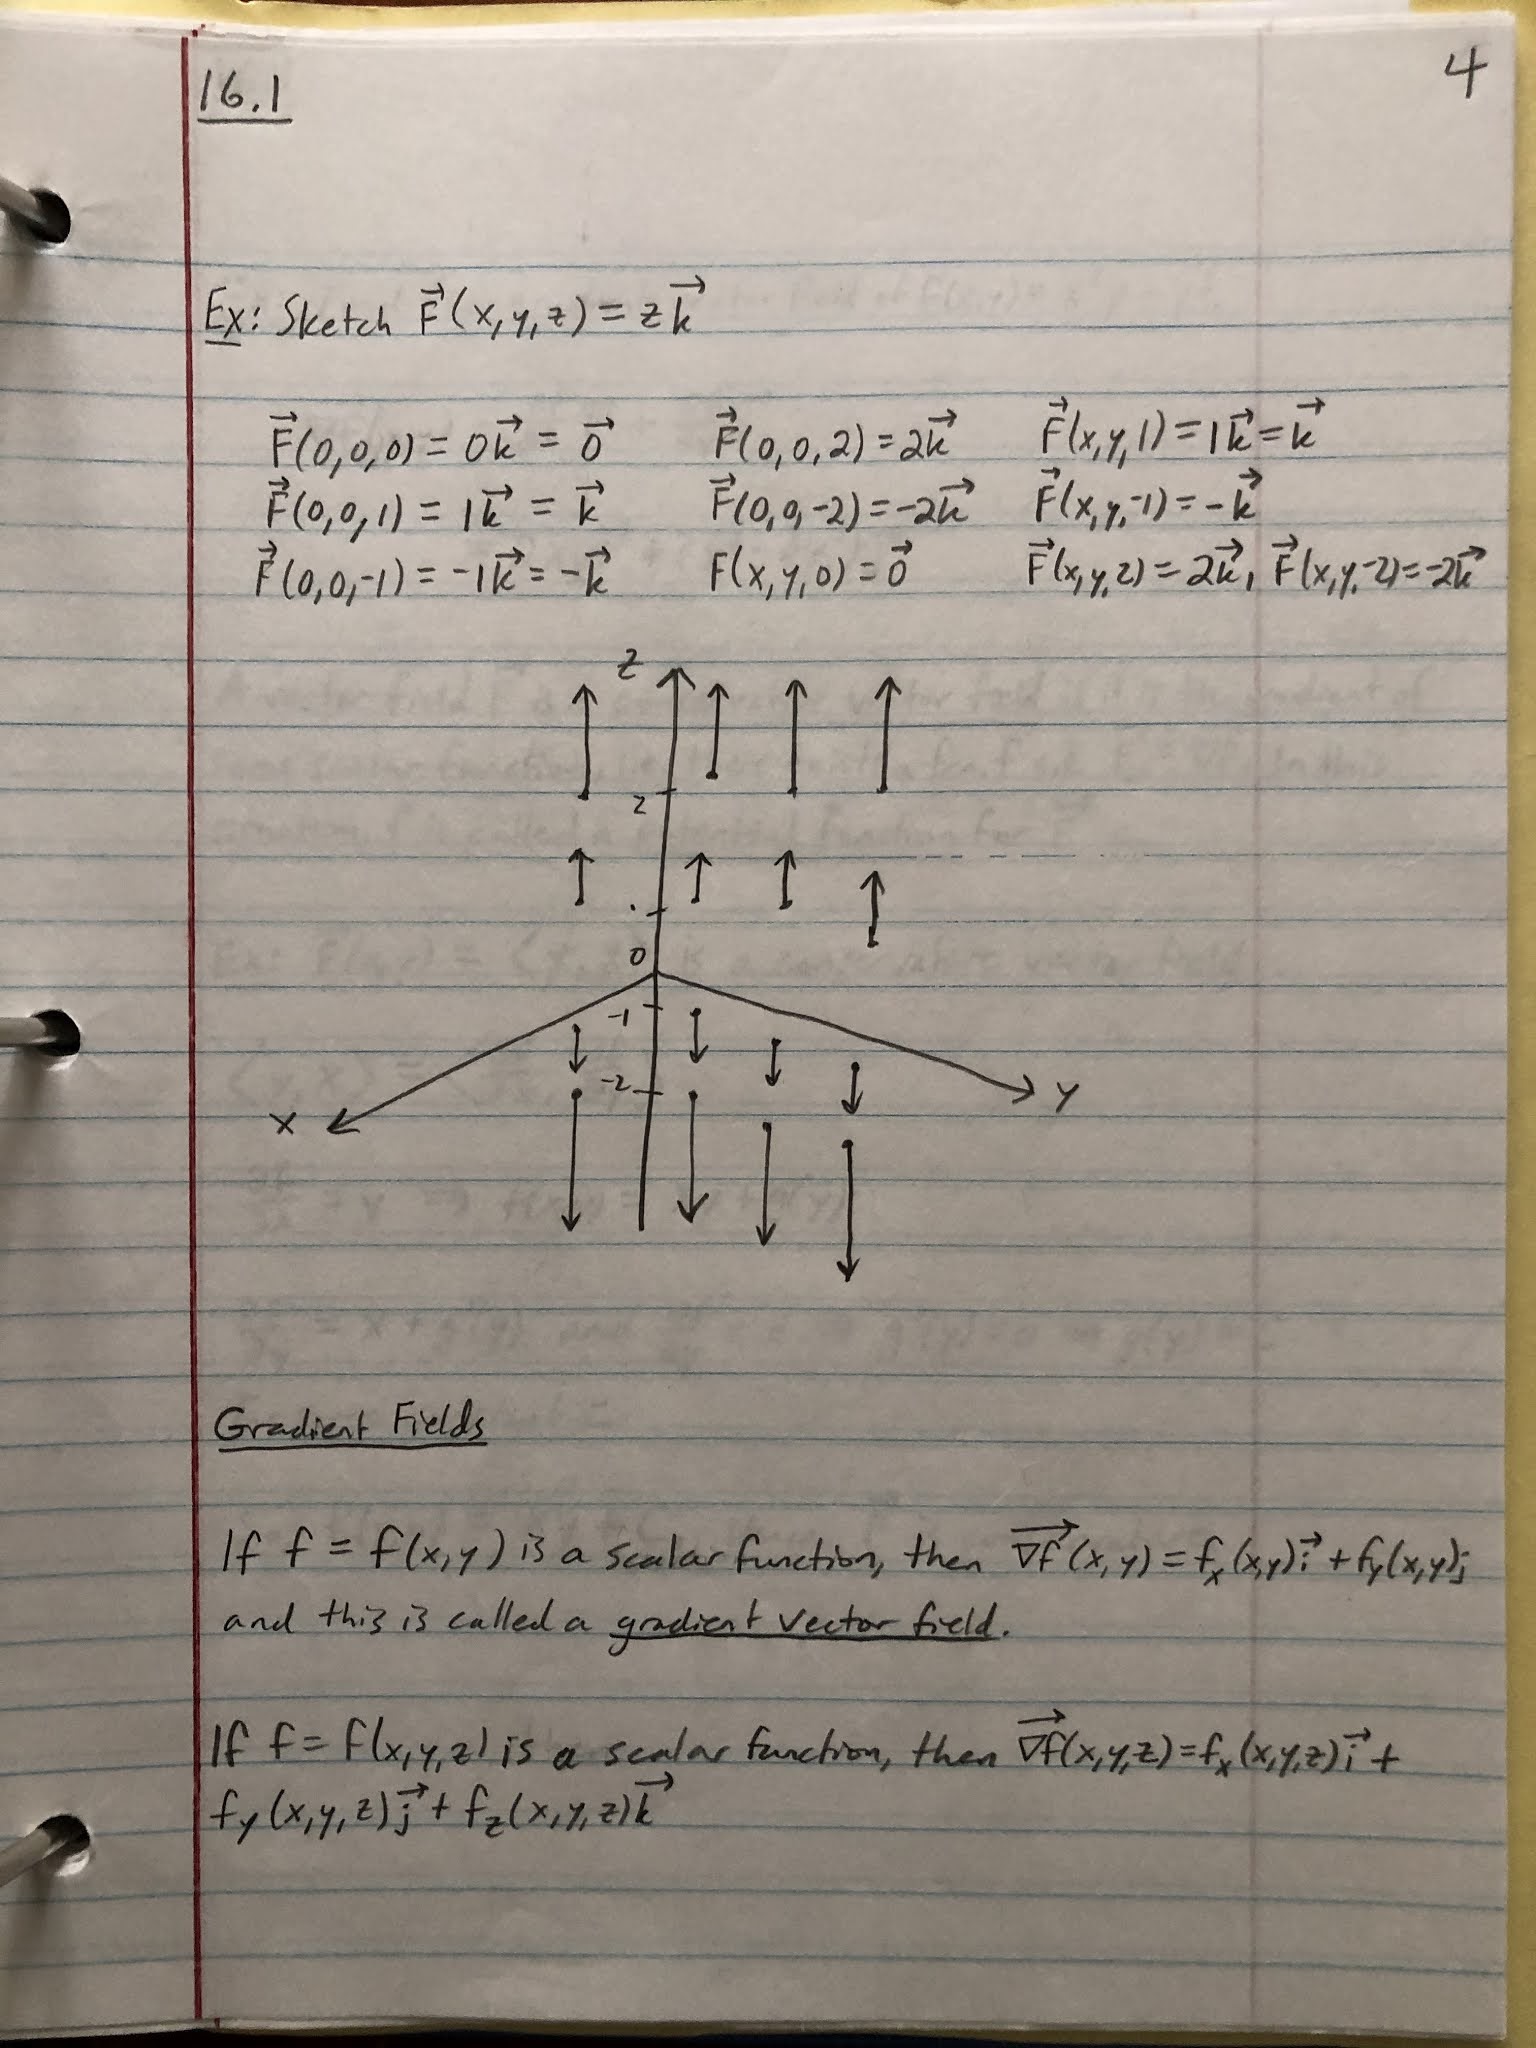 16.1 4
Ex: Sketch F⃗(x,y,z) = zk⃗
F⃗(0,0,0) = 0k⃗ = 0⃗ F⃗(0,0,2) = 2k⃗ F⃗(x,y,1) = 1k⃗ = k⃗
F⃗(0,0,1) = 1k⃗ = k⃗ F⃗(0,0,-2) = -2k⃗ F⃗(x,y,-1) = -k⃗
F⃗(0,0,-1) = -1k⃗ = -k⃗ F(x,y,0) = 0⃗ F⃗(x,y,2) = 2k⃗, F⃗(x,y,-2) = -2k⃗
z
2
0
-1
-2
x y
Gradient Fields
If f = f(x,y) is a scalar function, then ∇f⃗(x,y) = fₓ(x,y)i⃗ + f_y(x,y)j
and this is called a gradient vector field.
If f = f(x,y,z) is a scalar function, then ∇f⃗(x,y,z) = fₓ(x,y,z)i⃗ +
f_y(x,y,z)j⃗ + f_z(x,y,z)k⃗